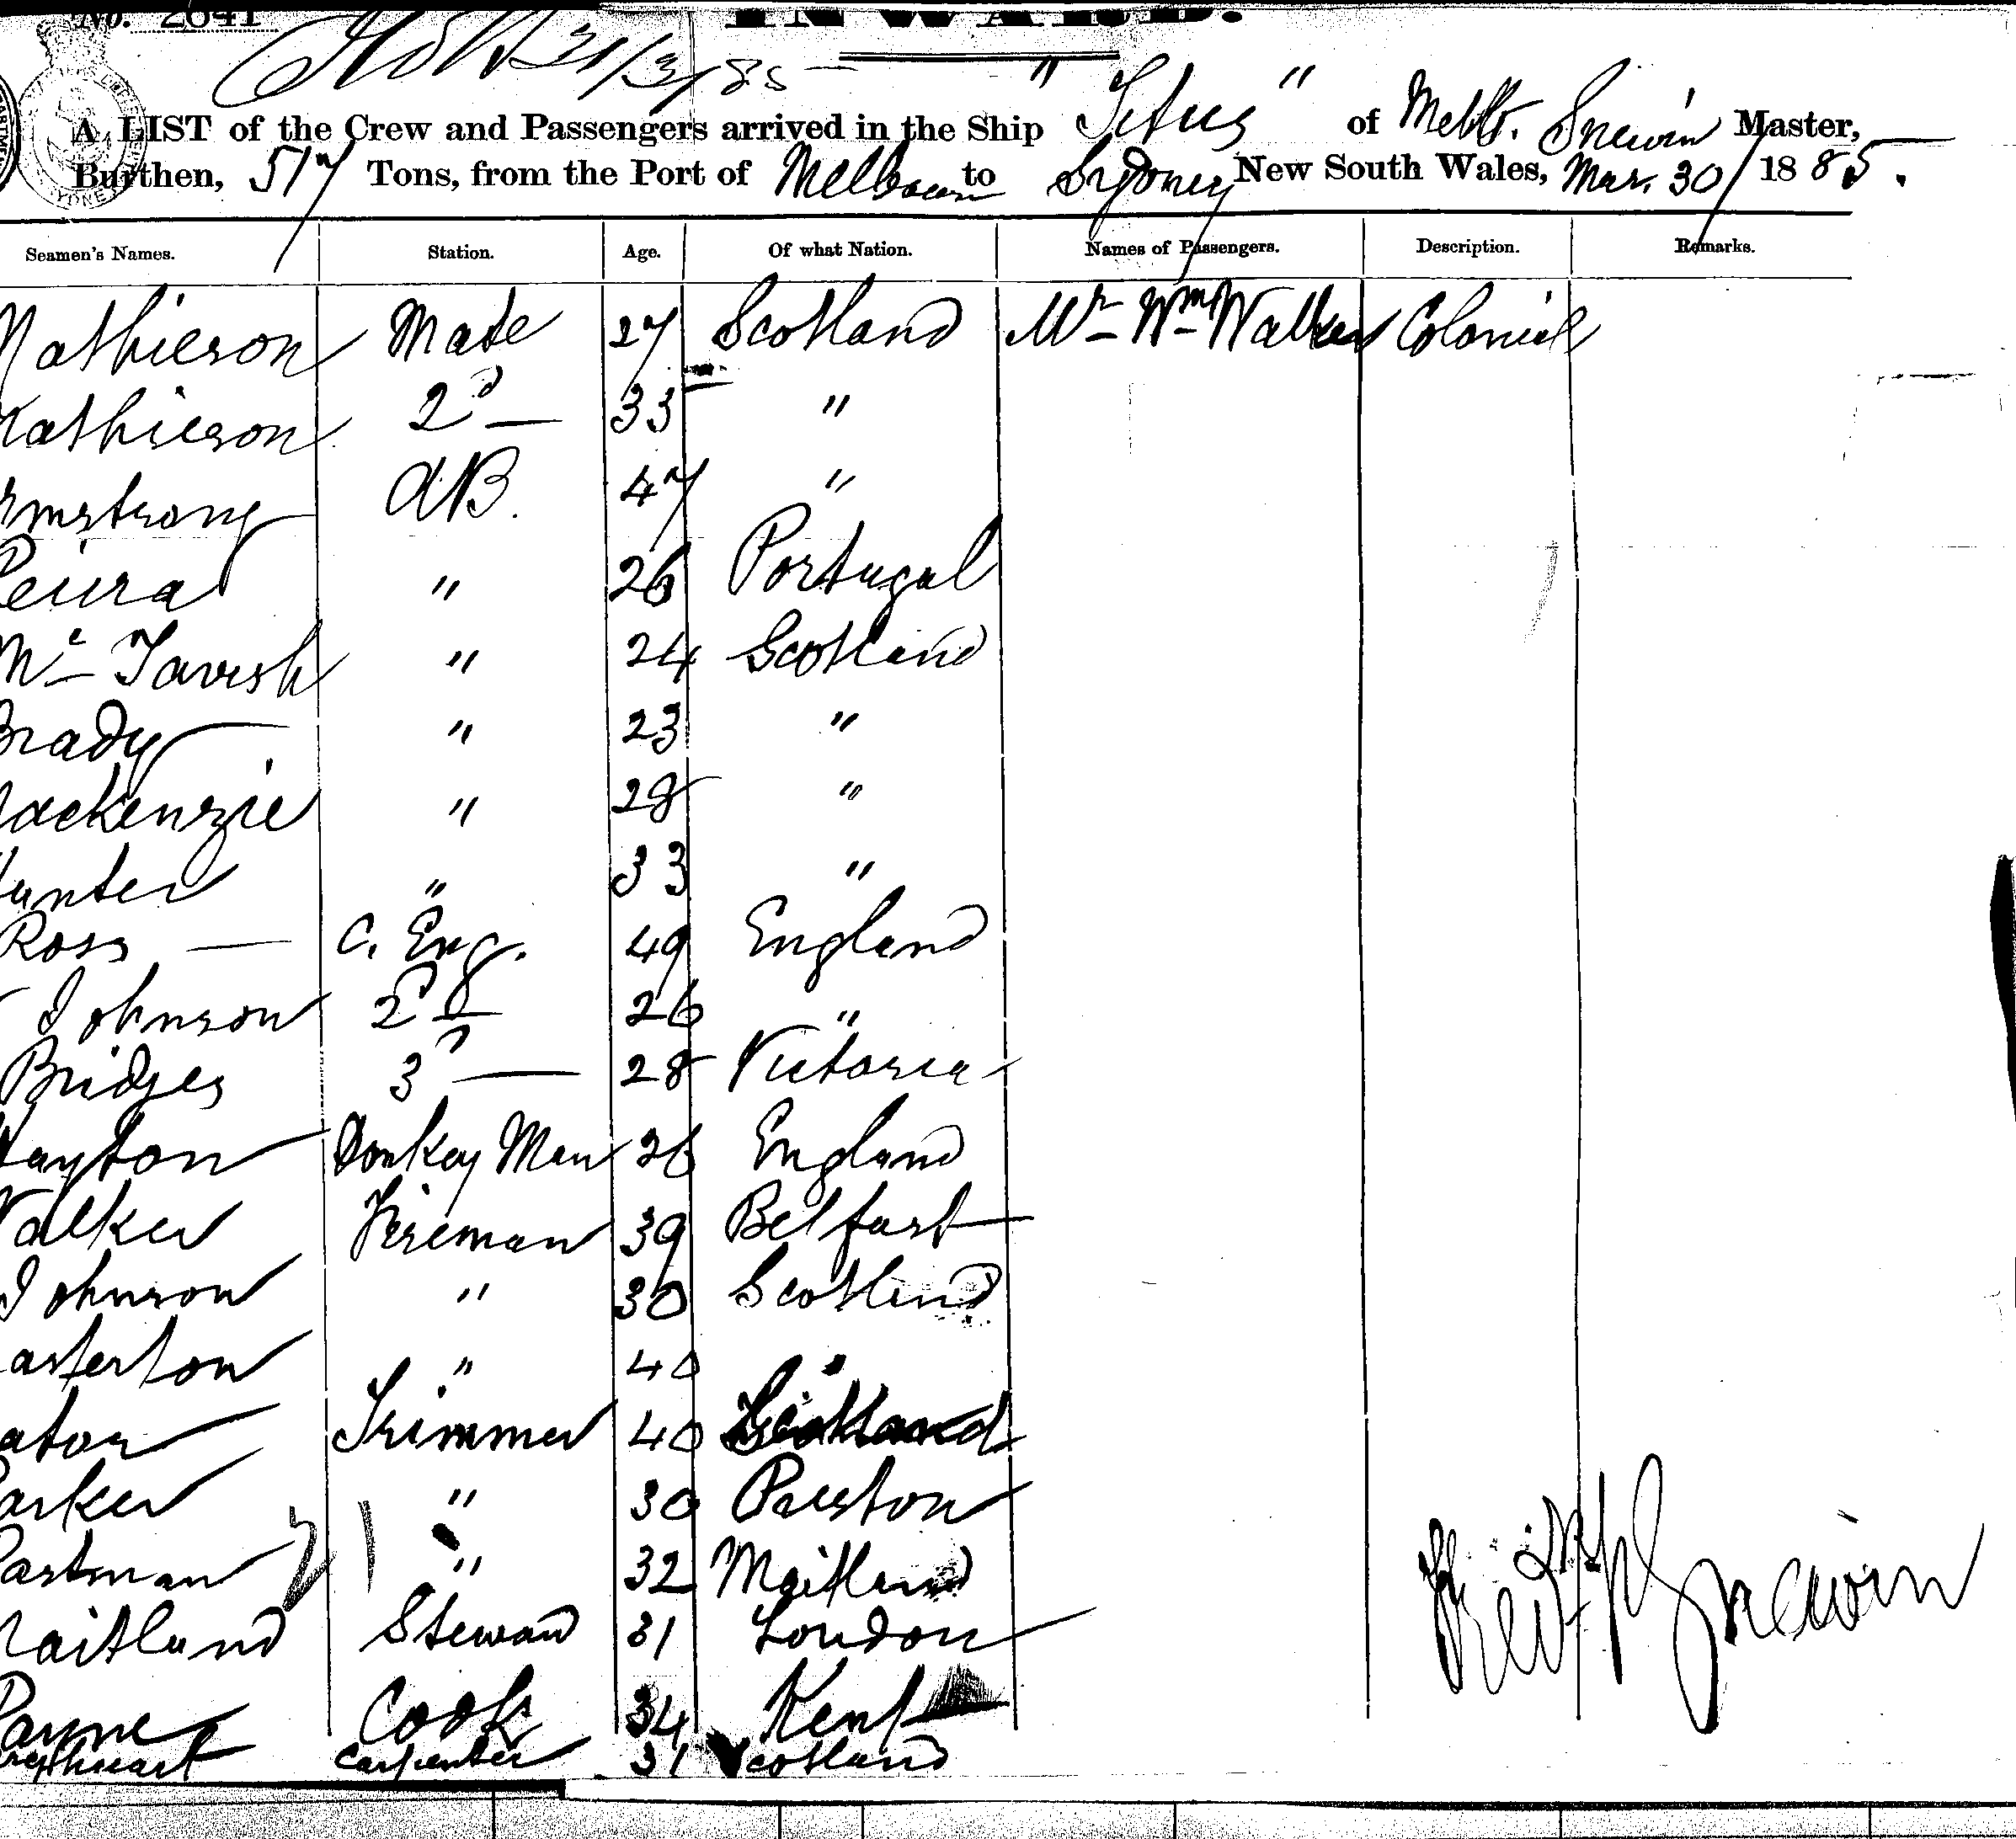 No. 2641
INWARD.
31/3/85
A LIST of the Crew and Passengers arrived in the Ship " Titus " of Melb. Snewin Master,
Burthen, 517 Tons, from the Port of Melbourn to Sydney New South Wales, Mar. 30/ 1885.
Seamen's Names. Station. Age. Of what Nation. Names of Passengers. Description. Remarks.
Mathieson Mate 27 Scotland Mr Wm Walker Colonial
Mathieson 2d — 33 "
Armstrong AB. 47 "
Peira " 26 Portugal
Mc Tavish " 24 Scotland
Brady " 23 "
Mackenzie " 28 "
Hunter " 33 "
Ross — C. Eng. 49 England
Johnson 2d 26 "
Bridges 3d — 28 Victoria
Hayton Donkey Man 26 England
Walker Fireman 39 Belfast
Johnson " 30 Scotland
asterton " 40 "
ator Trimmer 40 Scotland
Parker " 30 Preston
Partman " 32 Maitland
Maitland Steward 31 London
Payne Cook 34 Kent
Carpenter 31 Scotland
Fredk Snewin